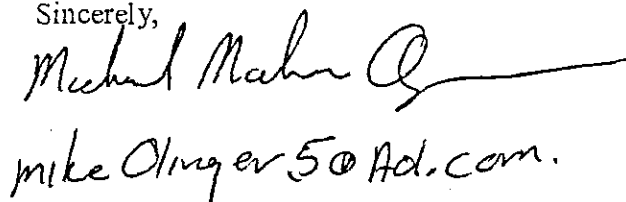 Sincerely,
Michael
mike Olinger 5@Ad.com.